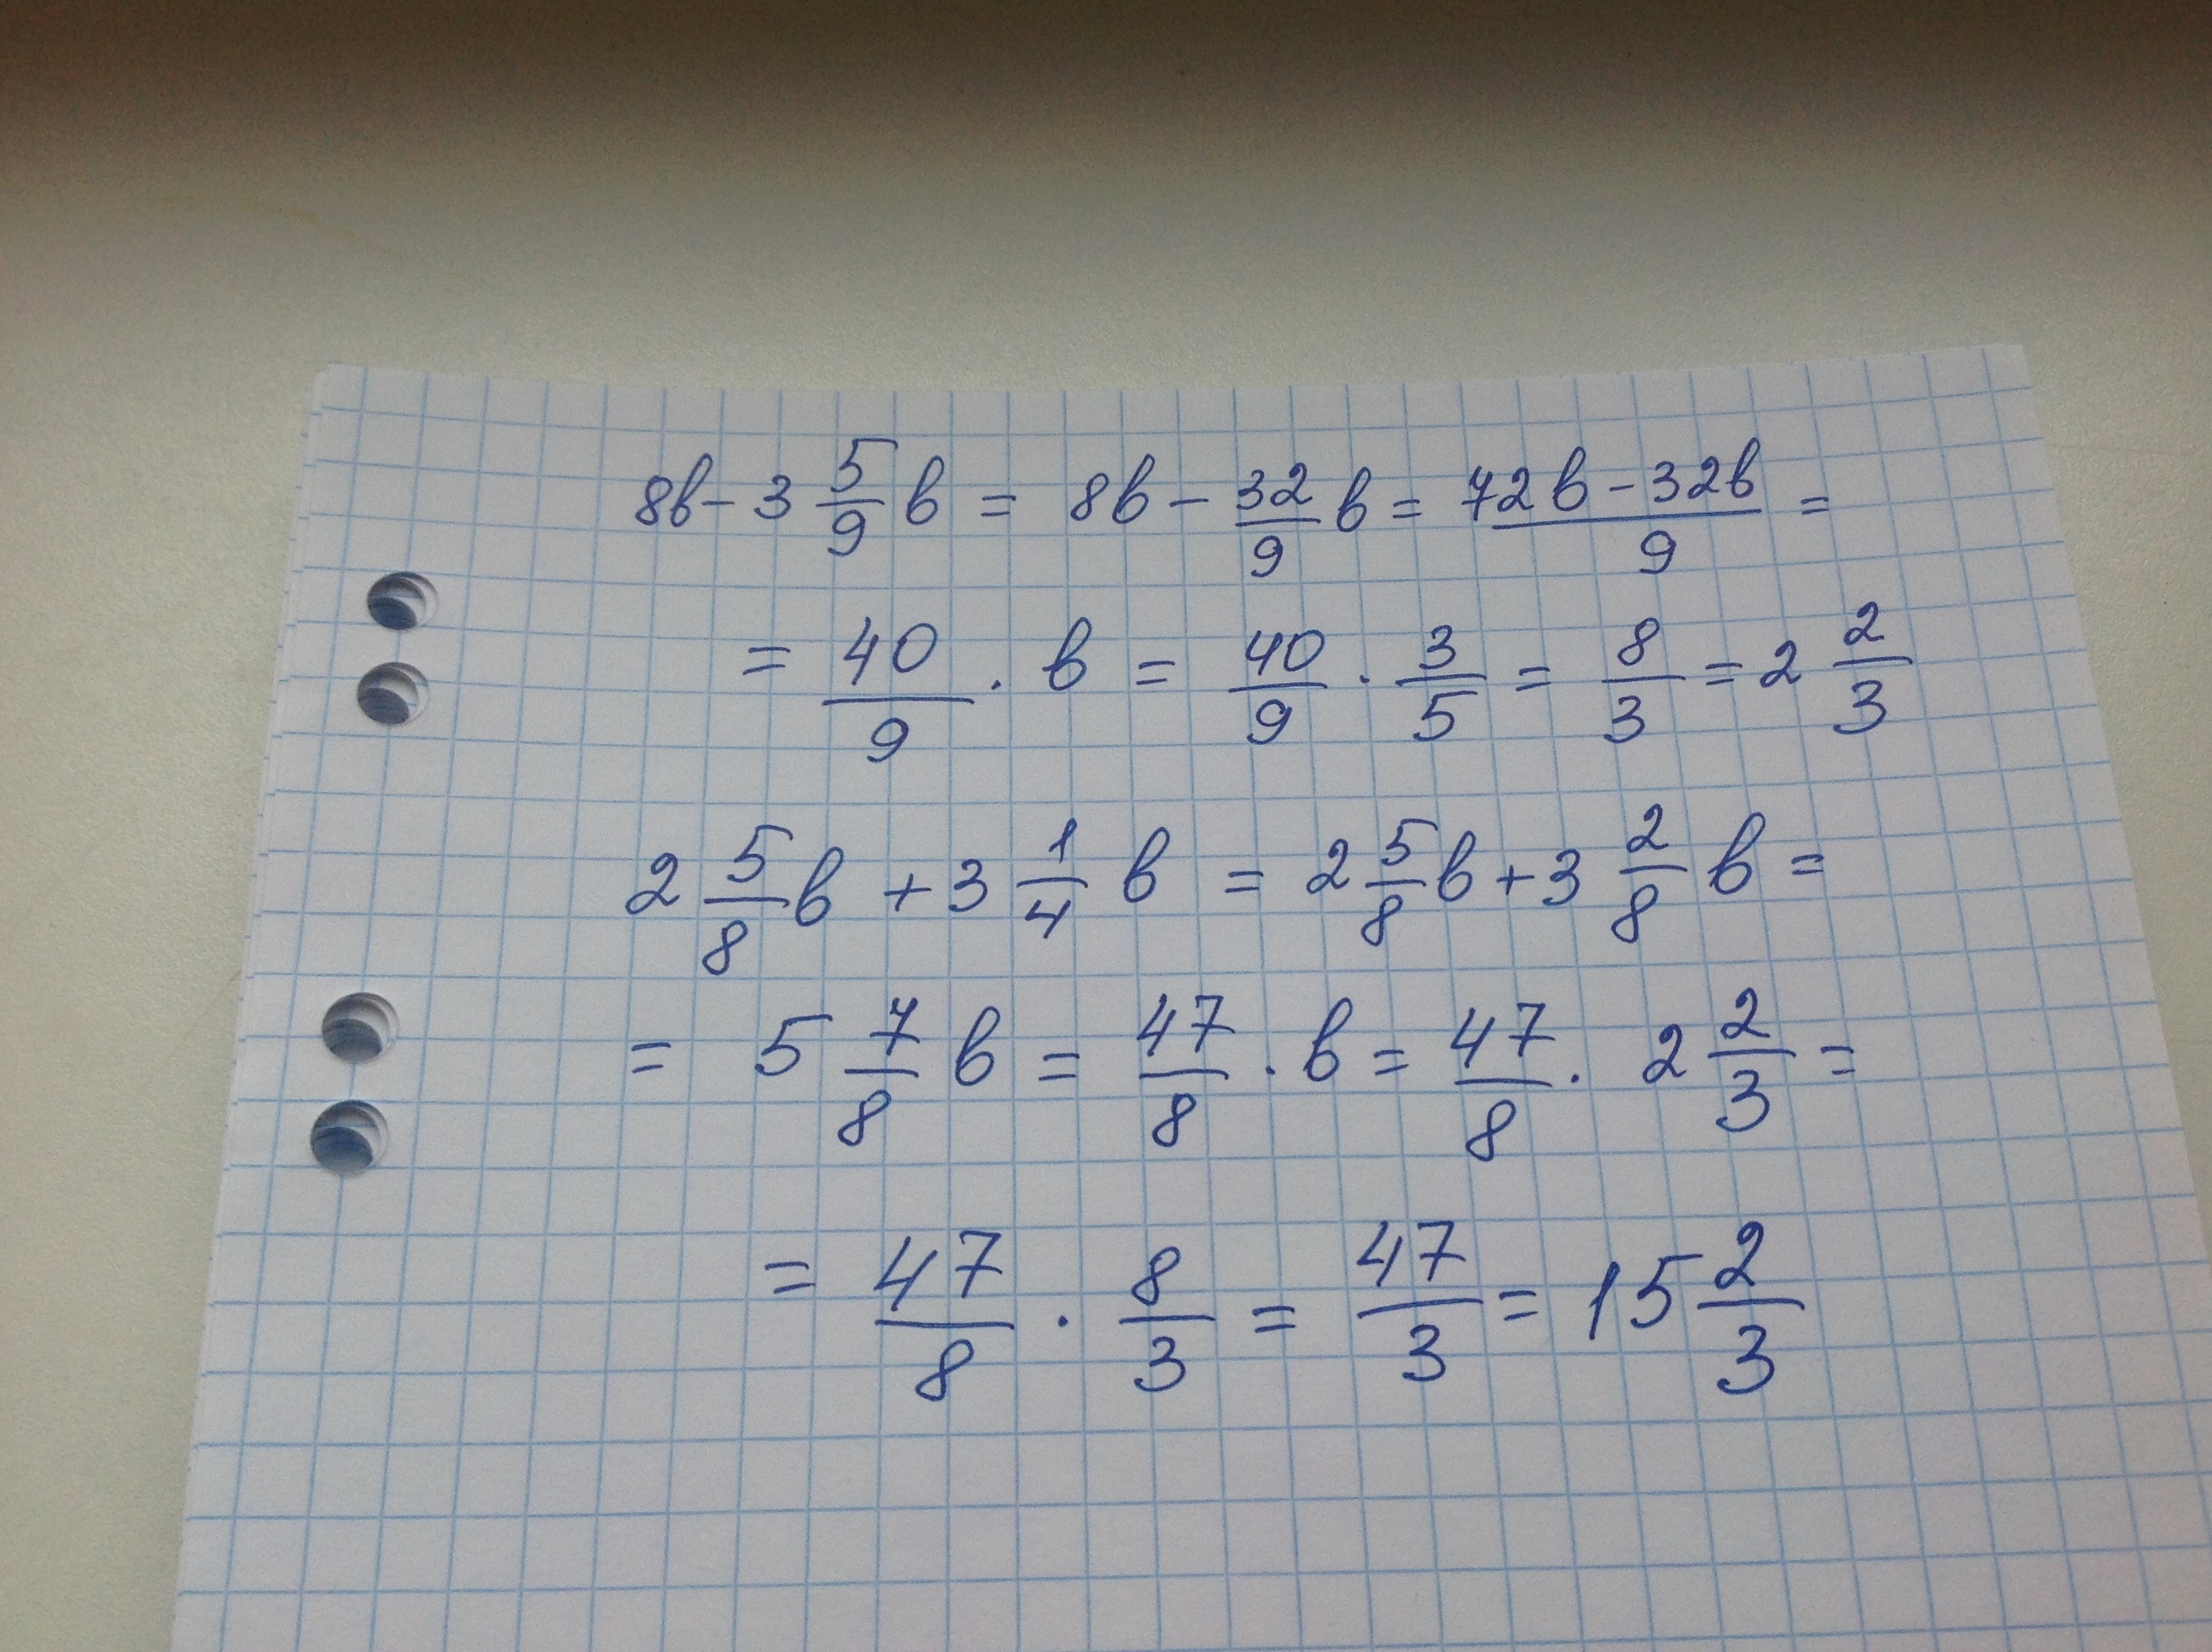 8в - 3 5/9 в = 8в - 32/9 в = 72в - 32в/9 =
= 40/9 · в = 40/9 · 3/5 = 8/3 = 2 2/3
2 5/8 в + 3 1/4 в = 2 5/8 в + 3 2/8 в =
= 5 7/8 в = 47/8 · в = 47/8 · 2 2/3 =
= 47/8 · 8/3 = 47/3 = 15 2/3